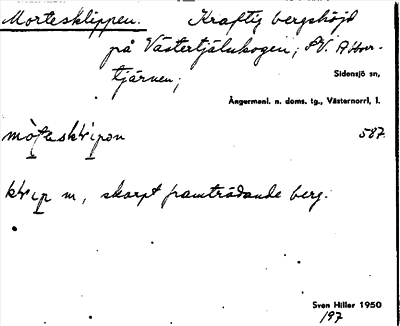 Mortesklippen. Kraftig bergshöjd
på Västertjälnskogen; SV. 
tjärnen;
Sidensjö sn,
Ångermanl. n. doms. tg., Västernorrl. l.
587.
m, skarpt framträdande berg.
Sven Hiller 1950
197